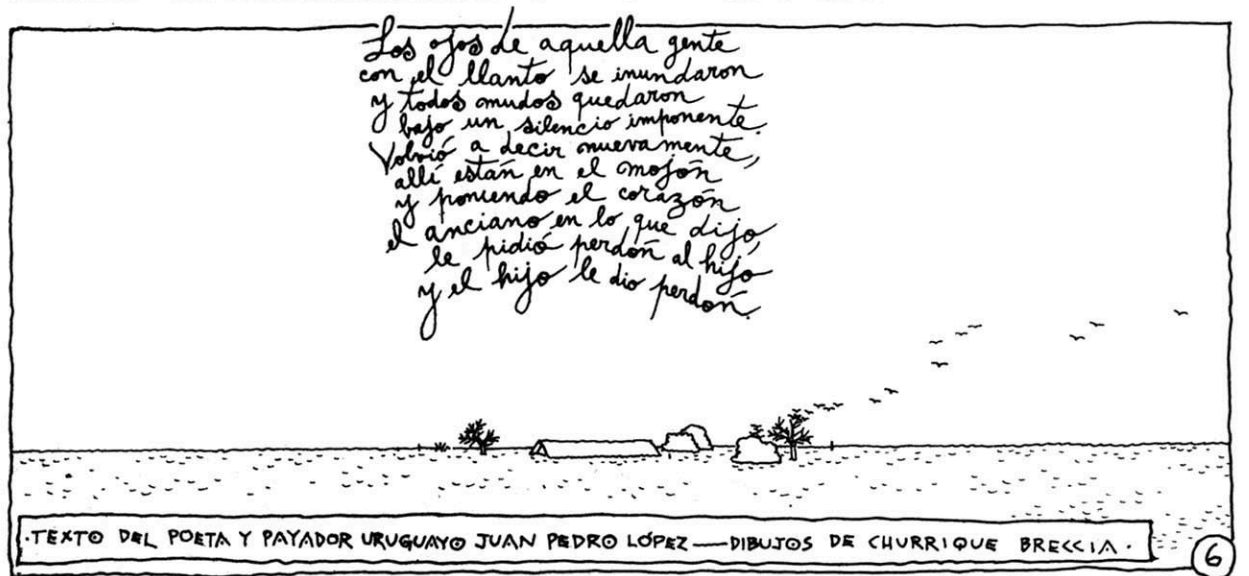 Los ojos de aquella gente
con el llanto se inundaron
y todos mudos quedaron
bajo un silencio imponente.
Volvió a decir nuevamente,
allí están en el mojón
y poniendo el corazón
el anciano en lo que dijo,
le pidió perdón al hijo
y el hijo le dio perdón.
·TEXTO DEL POETA Y PAYADOR URUGUAYO JUAN PEDRO LÓPEZ — DIBUJOS DE CHURRIQUE BRECCIA·
6